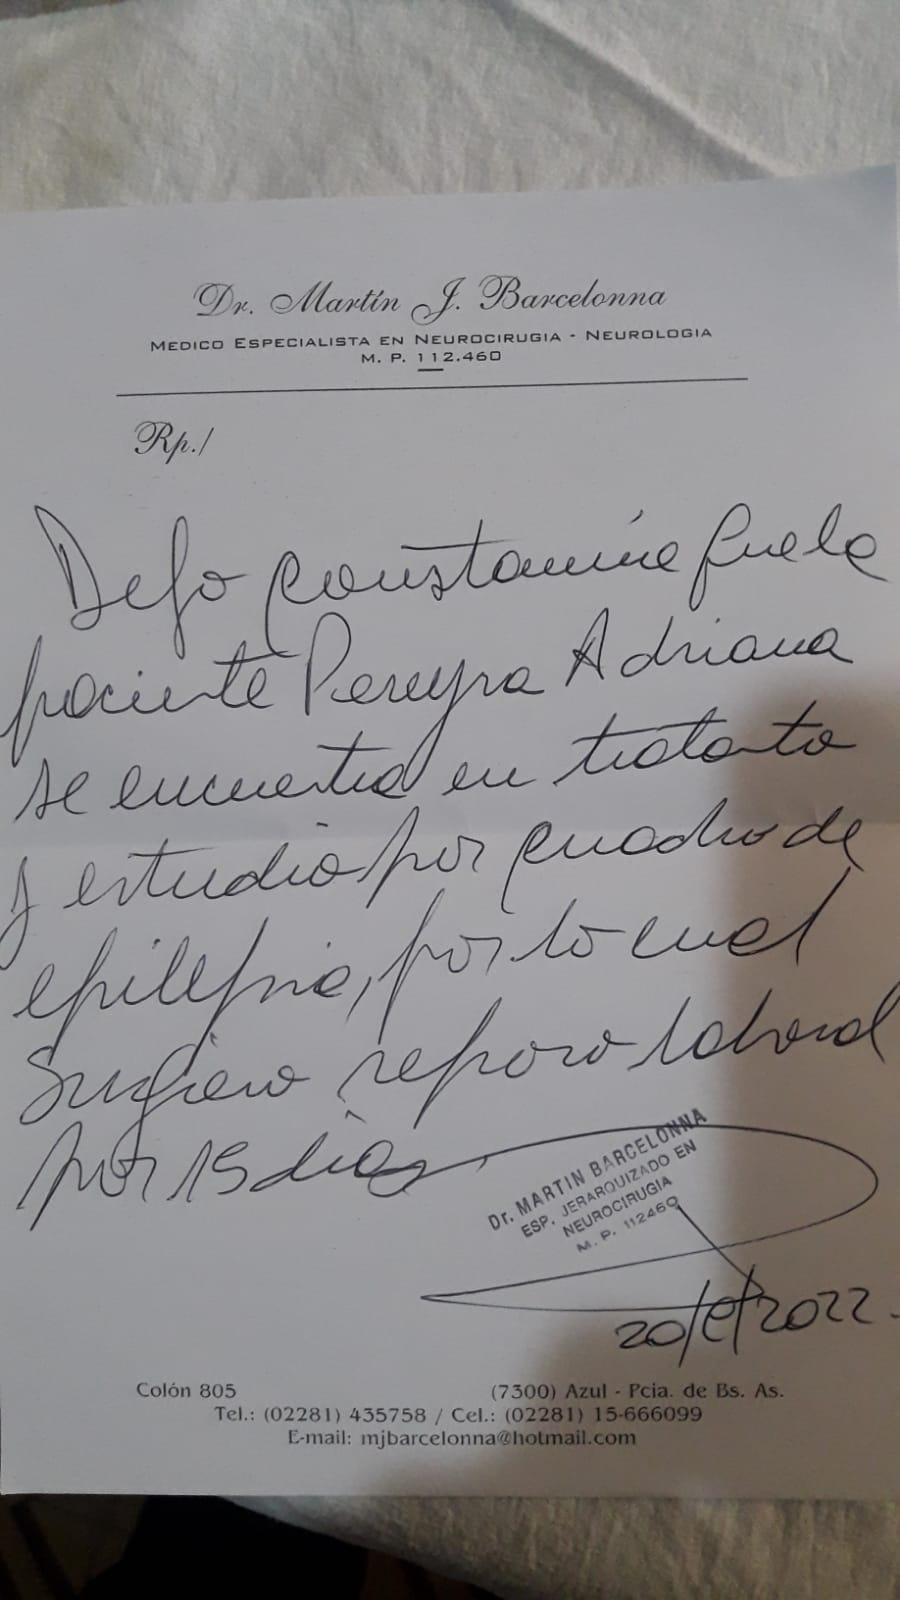 Dr. Martín J. Barcelonna
MEDICO ESPECIALISTA EN NEUROCIRUGIA - NEUROLOGIA
M. P. 112.460
Rp./
Dejo constancia que la
paciente Pereyra Adriana
se encuentra en tratamto
y estudio por cuadro de
epilepsia, por lo cual
sugiero reposo laboral
por 15 días.
Dr. MARTIN BARCELONNA
ESP. JERARQUIZADO EN
NEUROCIRUGIA
M. P. 112460
Colón 805 (7300) Azul - Pcia. de Bs. As.
Tel.: (02281) 435758 / Cel.: (02281) 15-666099
E-mail: mjbarcelonna@hotmail.com